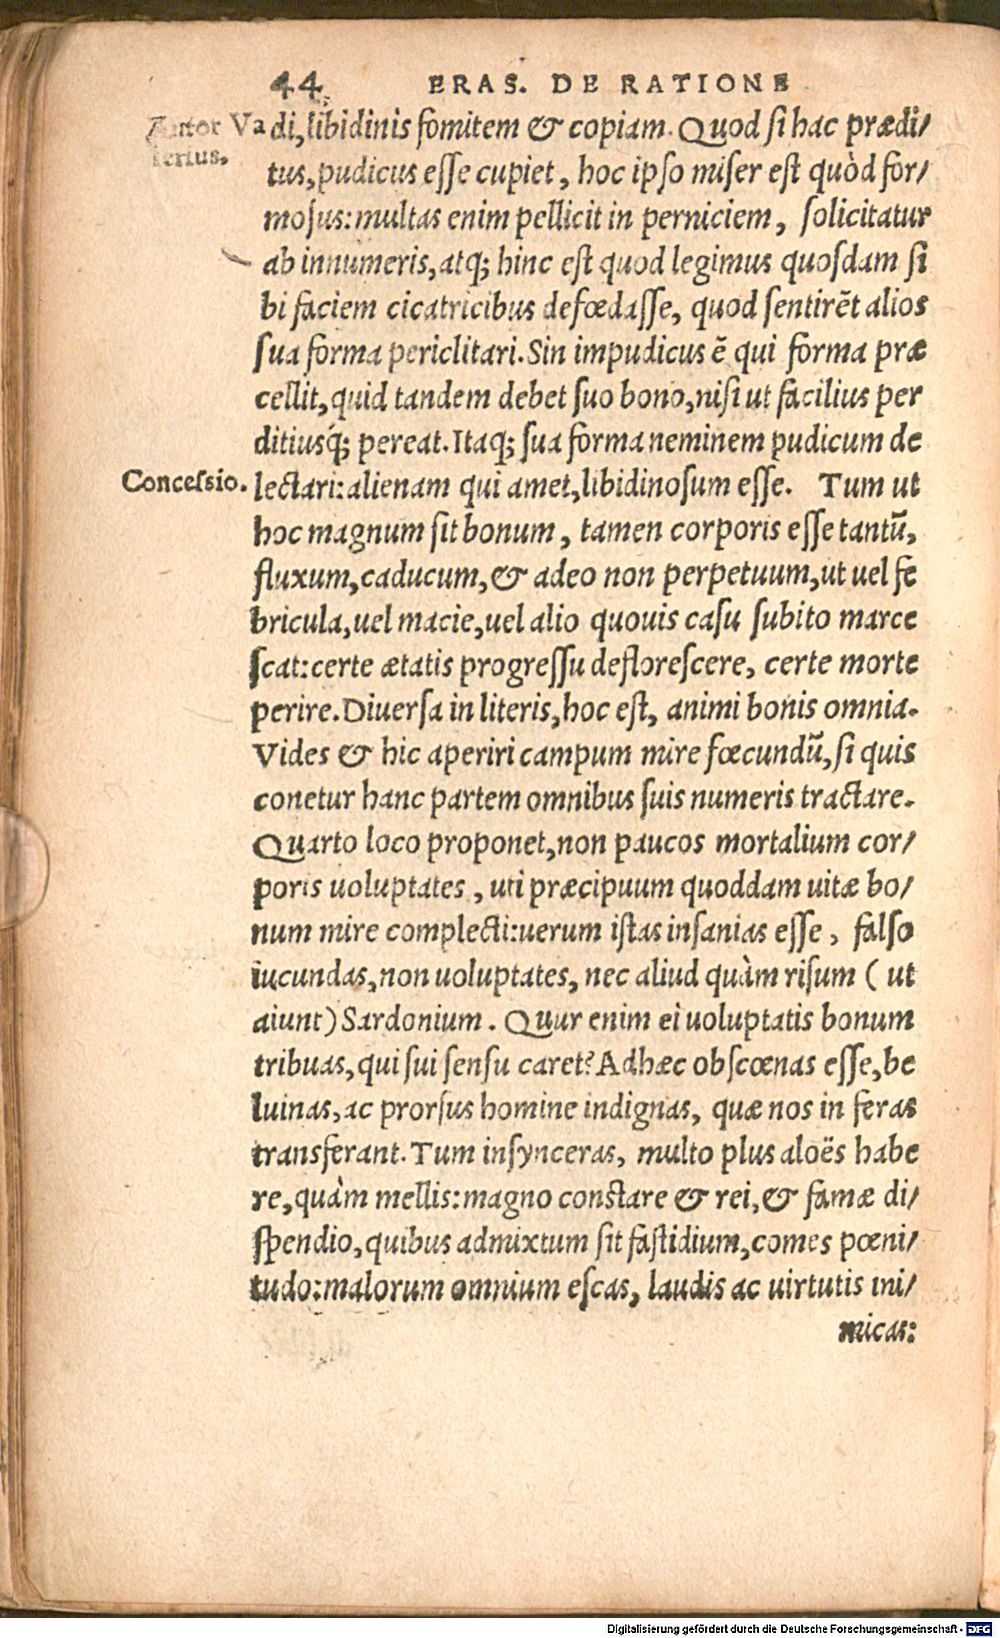 44 ERAS. DE RATIONE
Autor Va
lerius.
di, libidinis fomitem & copiam. Quod si hac prædi/
tus, pudicus esse cupiet, hoc ipso miser est quòd for/
mosus: multas enim pellicit in perniciem, solicitatur
ab innumeris, atq; hinc est quod legimus quosdam si
bi faciem cicatricibus defœdasse, quod sentirẽt alios
sua forma periclitari. Sin impudicus ẽ qui forma præ
cellit, quid tandem debet suo bono, nisi ut facilius per
ditiusq́; pereat. Itaq; sua forma neminem pudicum de
Concessio.
lectari: alienam qui amet, libidinosum esse. Tum ut
hoc magnum sit bonum, tamen corporis esse tantũ,
fluxum, caducum, & adeo non perpetuum, ut uel fe
bricula, uel macie, uel alio quouis casu subito marce
scat: certe ætatis progressu deflorescere, certe morte
perire. Diuersa in literis, hoc est, animi bonis omnia.
Vides & hic aperiri campum mire fœcundũ, si quis
conetur hanc partem omnibus suis numeris tractare.
Quarto loco proponet, non paucos mortalium cor/
poris uoluptates, uti præcipuum quoddam uitæ bo/
num mire complecti: uerum istas insanias esse, falso
iucundas, non uoluptates, nec aliud quàm risum ( ut
aiunt) Sardonium. Quur enim ei uoluptatis bonum
tribuas, qui sui sensu caret? Adhæc obscœnas esse, be
luinas, ac prorsus homine indignas, quæ nos in feras
transferant. Tum insynceras, multo plus aloës habe
re, quàm mellis: magno constare & rei, & famæ di/
spendio, quibus admixtum sit fastidium, comes pœni/
tudo: malorum omnium escas, laudis ac uirtutis ini/
micas:
Digitalisierung gefördert durch die Deutsche Forschungsgemeinschaft - DFG